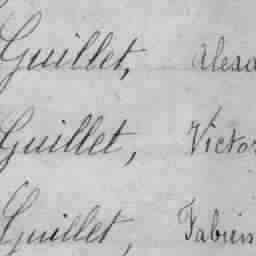 Guillet, Alexa
Guillet, Victor
Guillet, Fabien